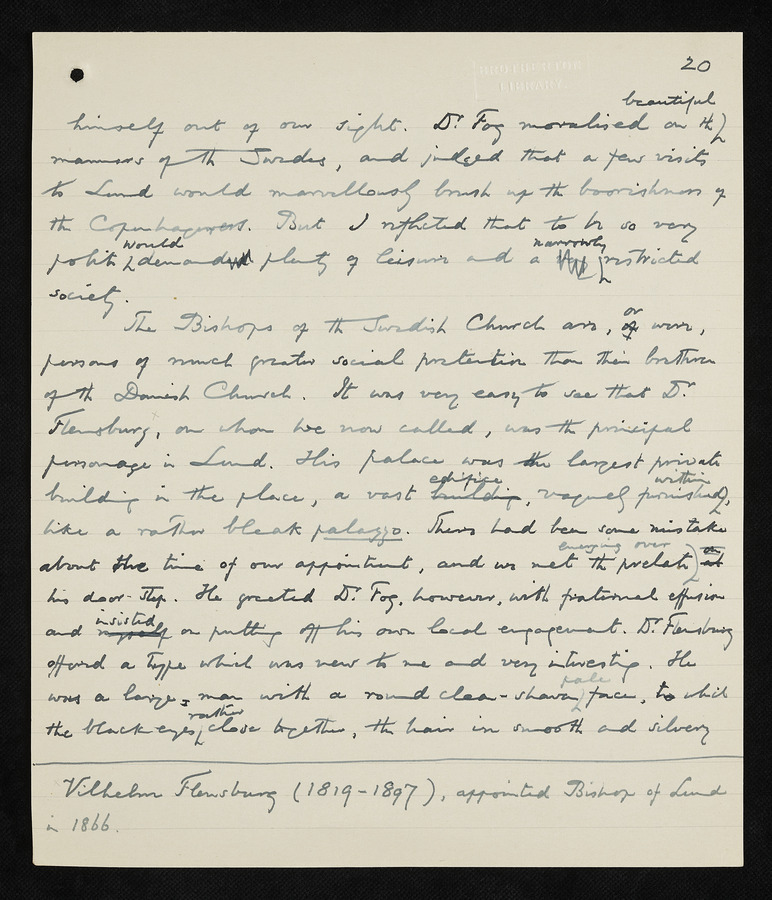 BROTHERTON
LIBRARY.
20
beautiful
himself out of our sight. Dr Fog moralised on the
manners of the Swedes, and judged that a few visits
to Lund would marvellously brush up the boorishness of
the Copenhageners. But I reflected that to be so very
would narrowly
polite demanded plenty of leisure and a restricted
society.
or
The Bishops of the Swedish Church are, of were,
persons of much greater social pretention than their brethren
of the Danish Church. It was very easy to see that Dr
Flensburg, on whom we now called, was the principal
personage in Lund. His palace was the largest private
edifice within
building in the place, a vast building, vaguely furnished,
like a rather bleak palazzo. There had been some mistake
emerging over
about the time of our appointment, and we met the prelate at
his door-step. He greeted Dr Fog, however, with fraternal effusion
insisted
and on putting off his own local engagement. Dr Flensburg
offered a type which was new to me and very interesting. He
pale
was a large man with a round clean-shaven face, to which
rather
the black eyes, close together, the hair in smooth and silvery
Vilhelm Flensburg (1819-1897), appointed Bishop of Lund
in 1866.